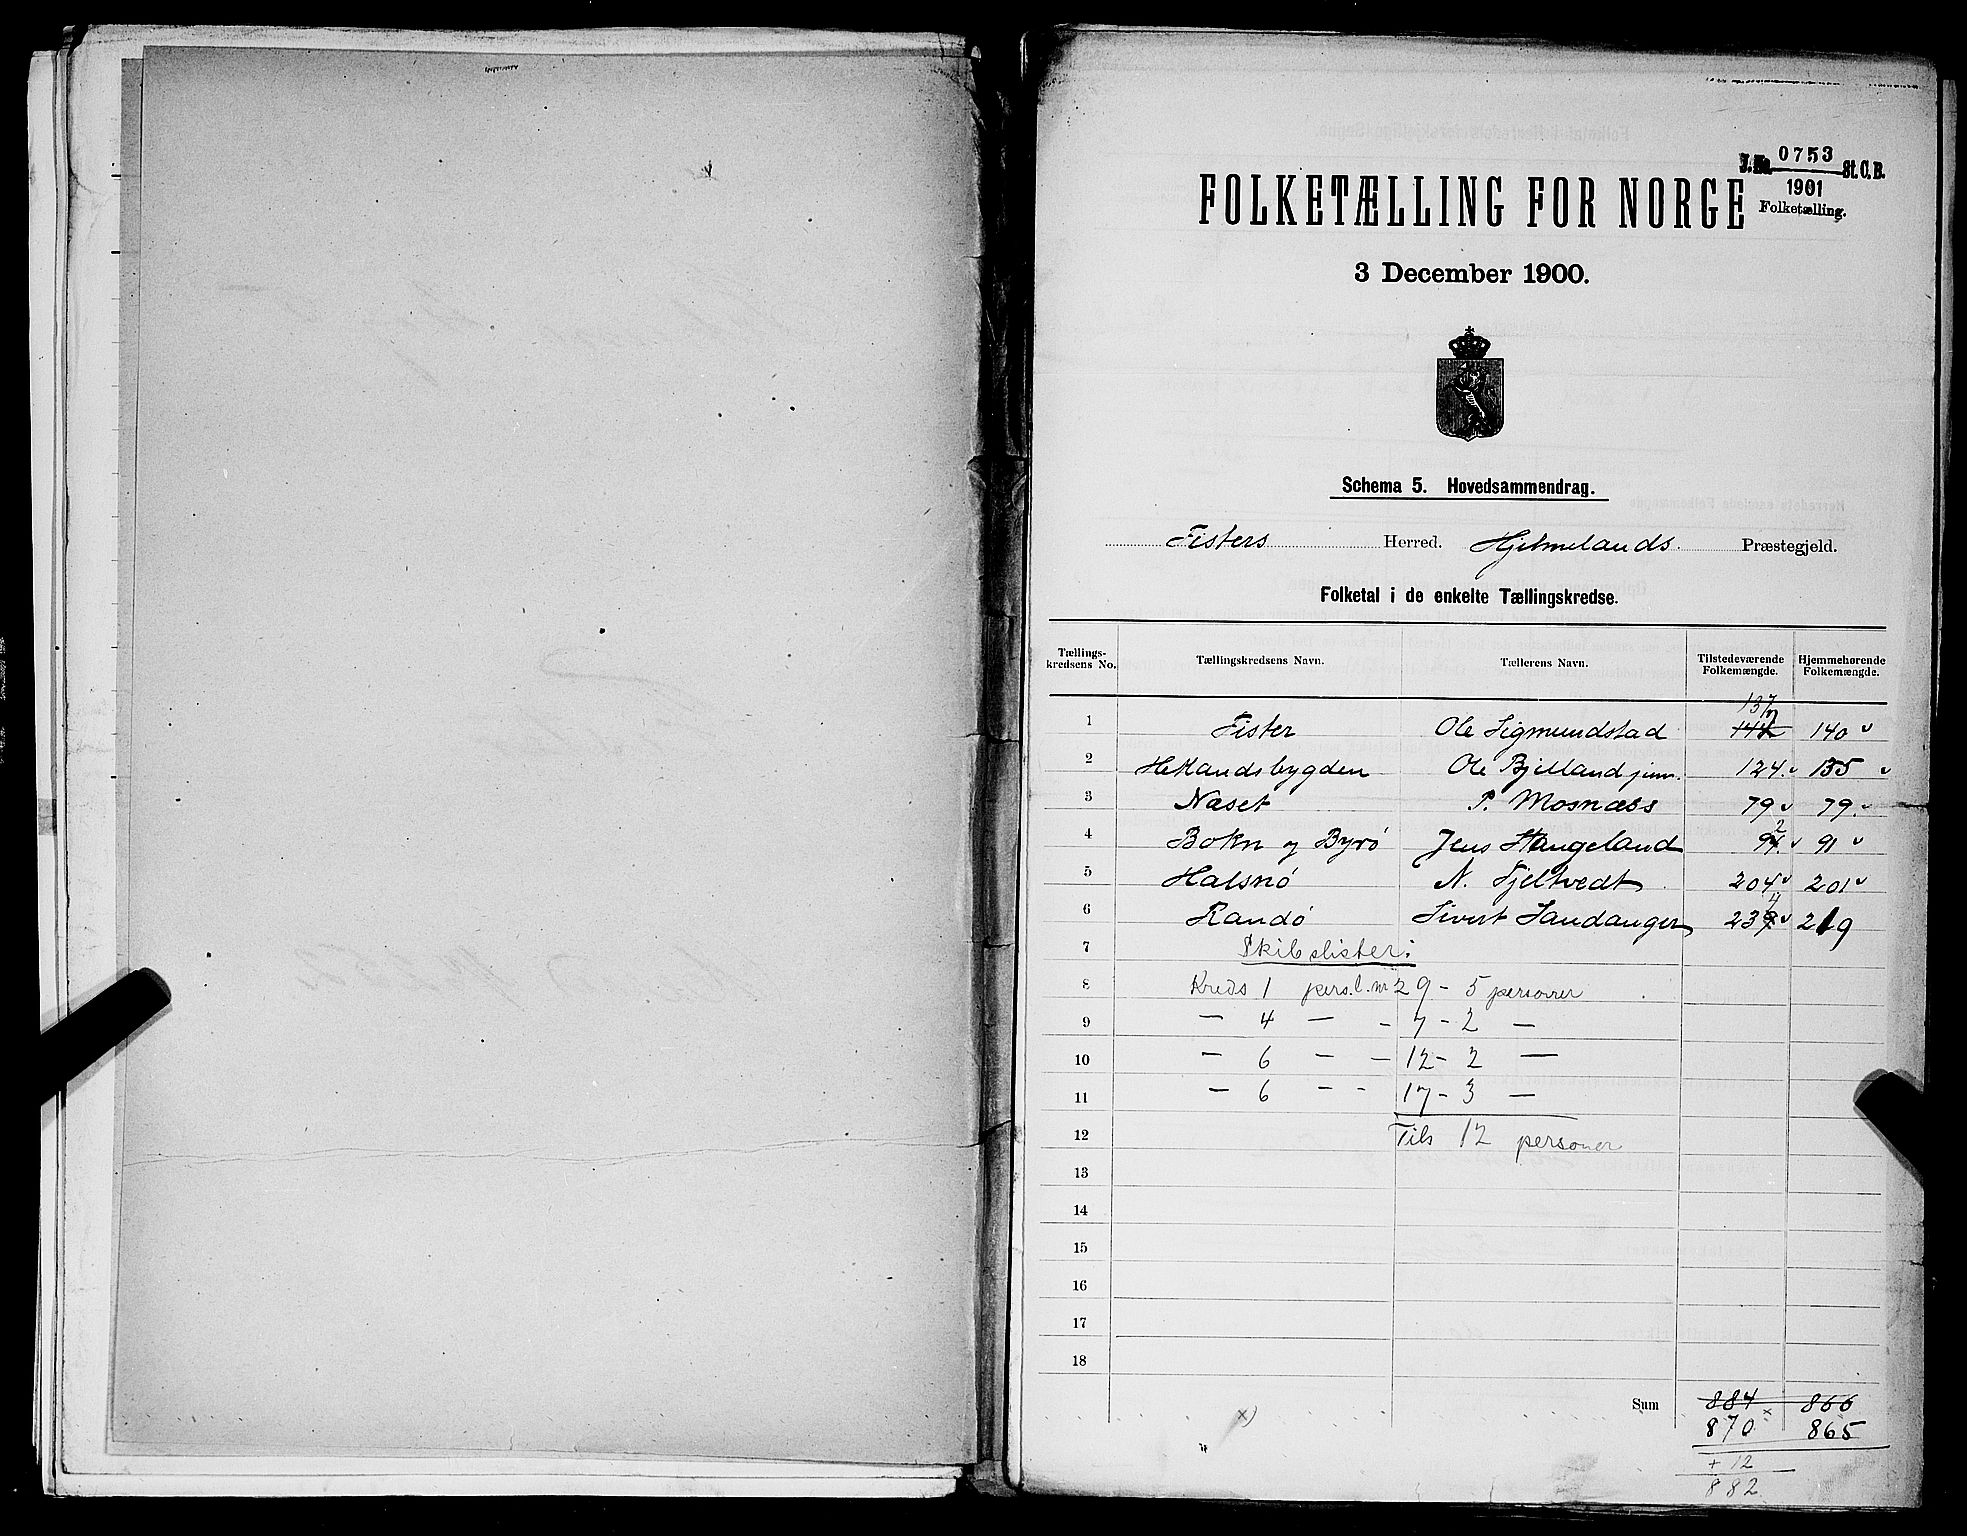 J.No. 0753 St.C.B.
1901
Folketælling.
FOLKETÆLLING FOR NORGE
3 December 1900.
Schema 5. Hovedsammendrag.
Fisters Herred. Hjelmelands Præstegjeld.
Folketal i de enkelte Tællingskredse.
Tællingskredsens No. Tællingskredsens Navn. Tællerens Navn. Tilstedeværende Folkemængde. Hjemmehørende Folkemængde.
137
1 Fister Ole Sigmundstad 140
2 Hetlandsbygden Ole Bjelland jun. 124. 135
3 Næset P. Mosnæss 79 79.
4 Bokn og Byrø Jens Haugeland 92 91
5 Halsnø N. Fjeltvedt 204 201
6 Randø Sivert Sandanger 234 219
7 Skibslister:
8 Kreds 1 pers.l. nr 29 - 5 personer
9 — 4 — - 7 - 2 —
10 — 6 — — 12 - 2 —
11 — 6 — - 17 - 3 —
12 Tils 12 personer
13
14
15
16
17
18
Sum 884 866
x) 870 x 865
+ 12
882